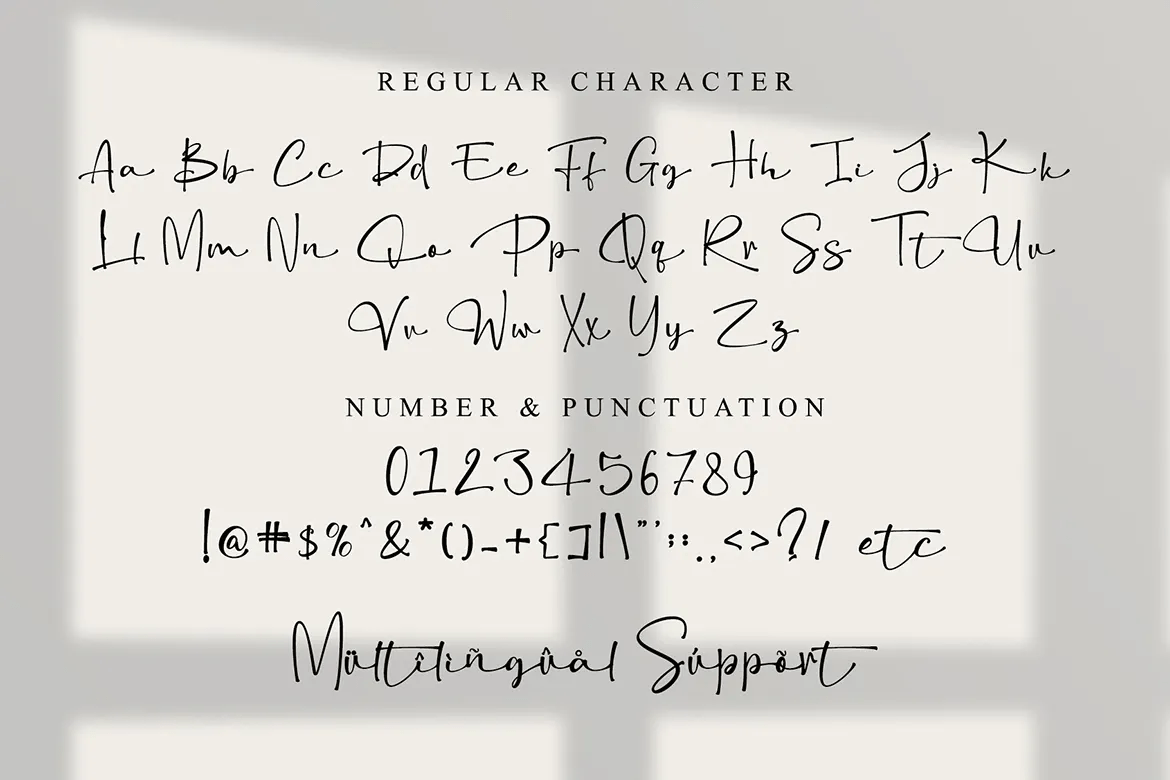 REGULAR CHARACTER
Aa Bb Cc Dd Ee Ff Gg Hh Ii Jj Kk
Ll Mm Nn Oo Pp Qq Rr Ss Tt Uu
Vv Ww Xx Yy Zz
NUMBER & PUNCTUATION
0123456789
!@#$%^&*()-+{]|\"';:.,<>?/ etc
Mültîlìñgûål Súppõrt